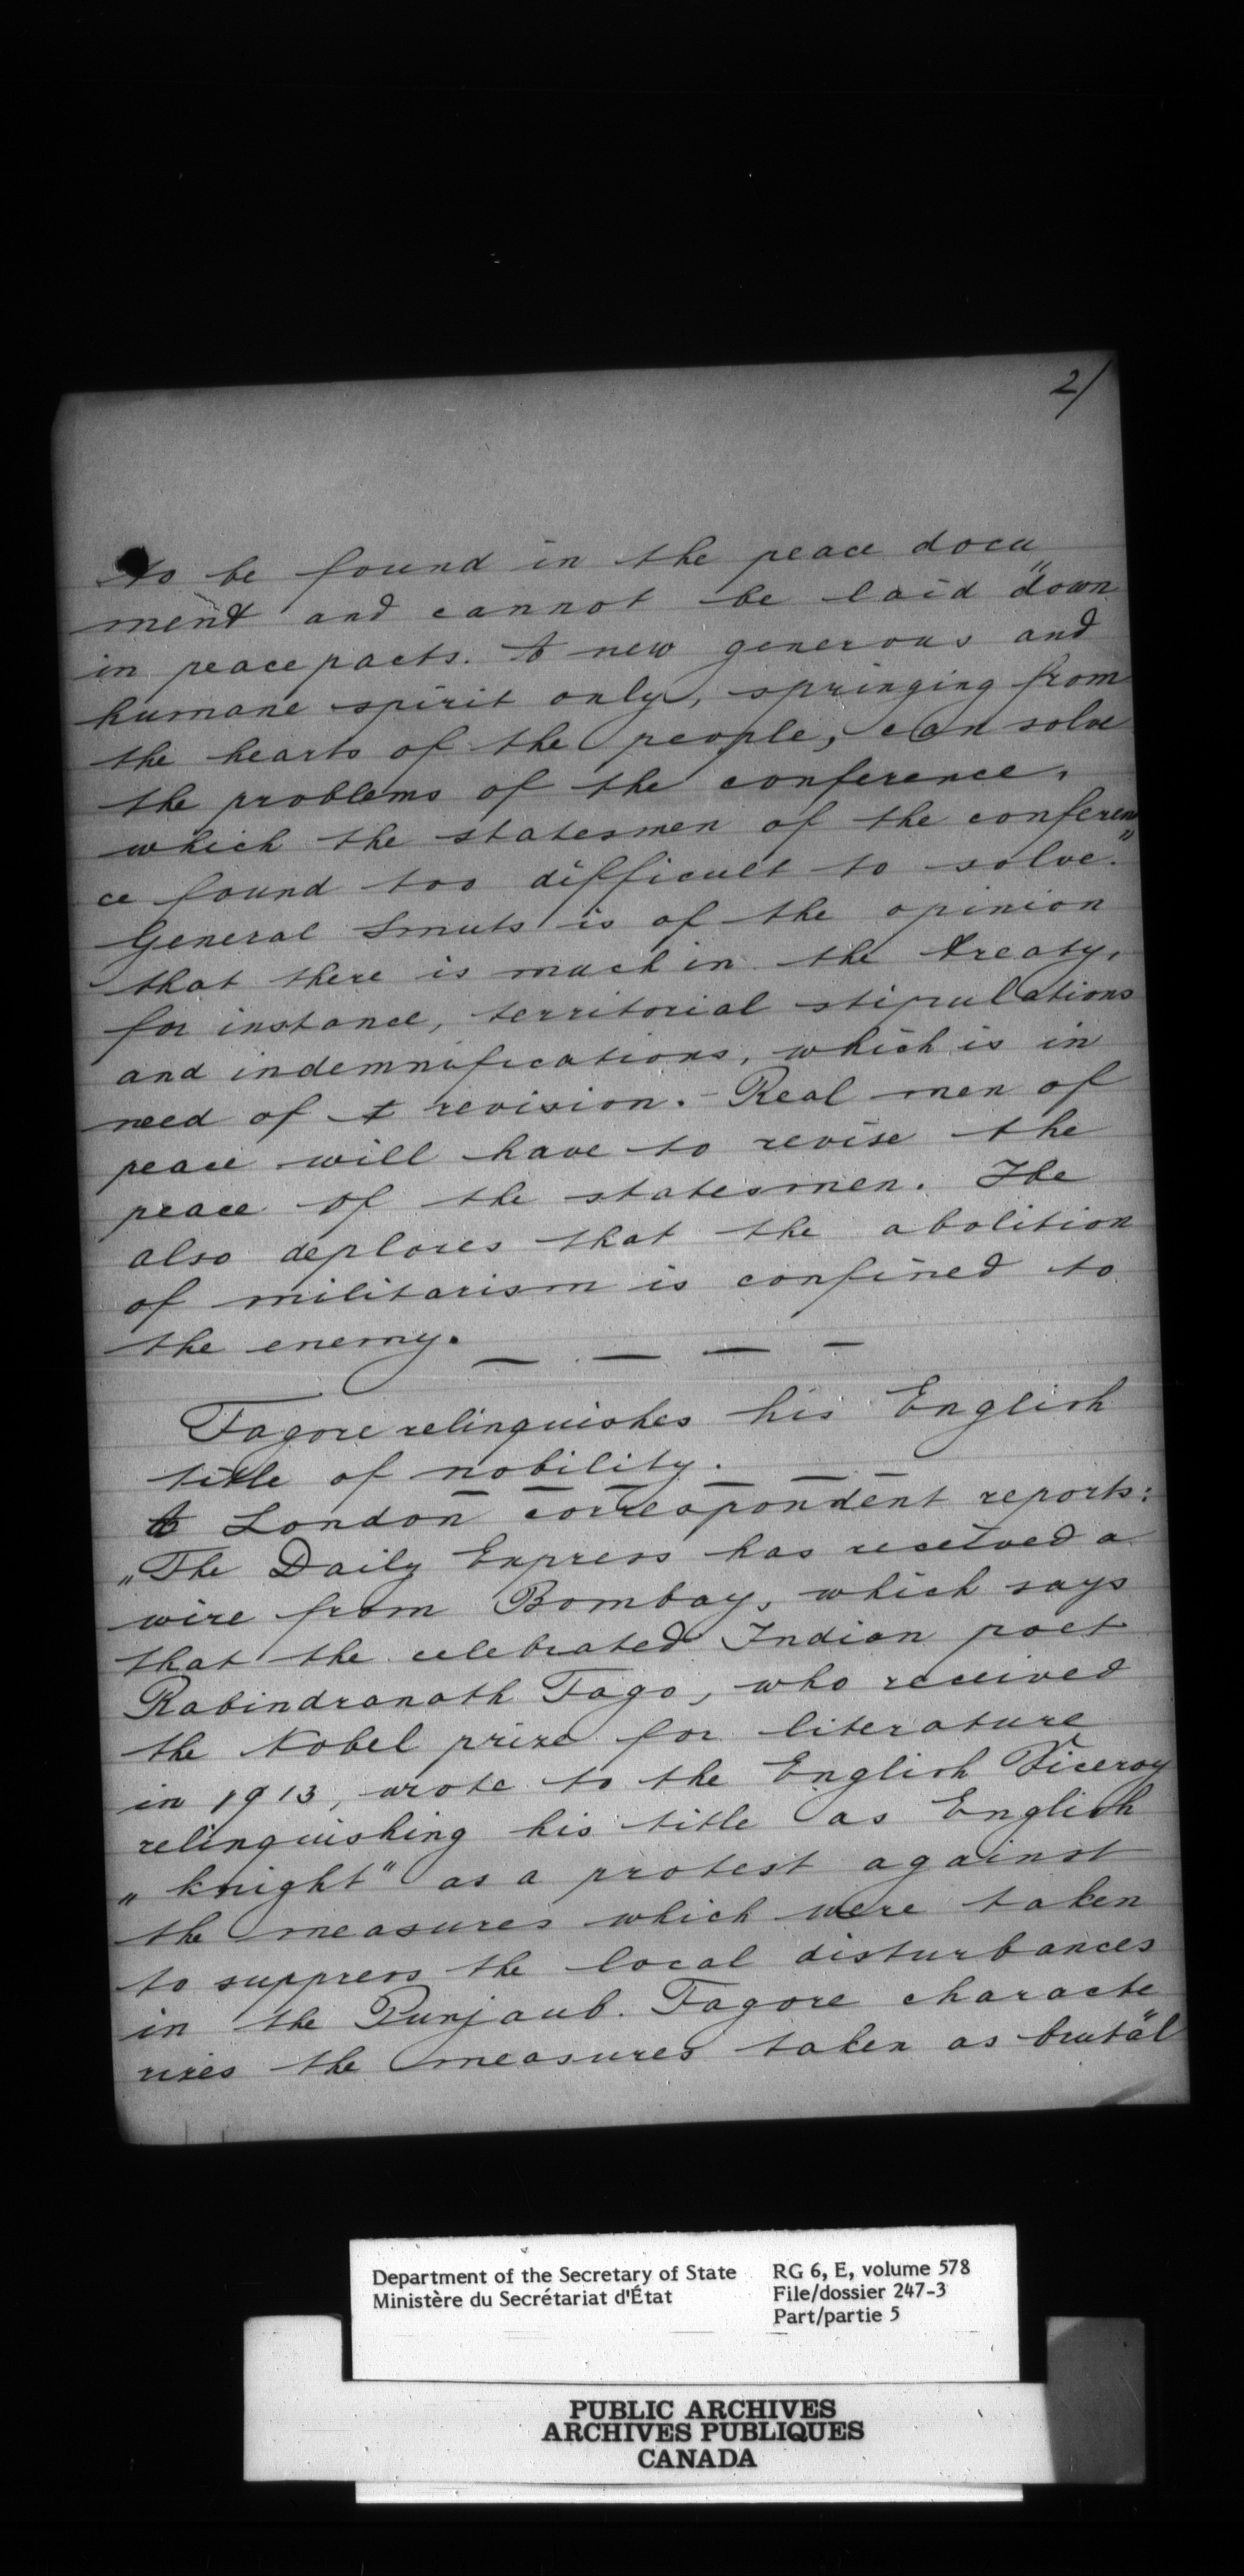 2/
to be found in the peace docu"
ment and cannot be laid down
in peace pacts. A new generous and
humane spirit only, springing from
the hearts of the people, can solve
the problems of the conference,
which the statesmen of the conferen
ce found too difficult to solve."
General Smuts is of the opinion
that there is much in the treaty,
for instance, territorial stipulations
and indemnifications, which is in
need of revision. - Real men of
peace will have to revise the
peace of the statesmen. He
also deplores that the abolition
of militarism is confined to
the enemy. — — — —
Tagore relinquishes his English
title of nobility.
A London correspondent reports:
„The Daily Express has received a
wire from Bombay, which says
that the celebrated Indian poet
Rabindranath Tago, who received
the Nobel prize for literature
in 1913, wrote to the English Viceroy
relinquishing his title as English
„knight" as a protest against
the measures which were taken
to suppress the local disturbances
in the Punjaub. Tagore characte"
rizes the measures taken as brutal
Department of the Secretary of State
Ministère du Secrétariat d'État
RG 6, E, volume 578
File/dossier 247-3
Part/partie 5
PUBLIC ARCHIVES
ARCHIVES PUBLIQUES
CANADA